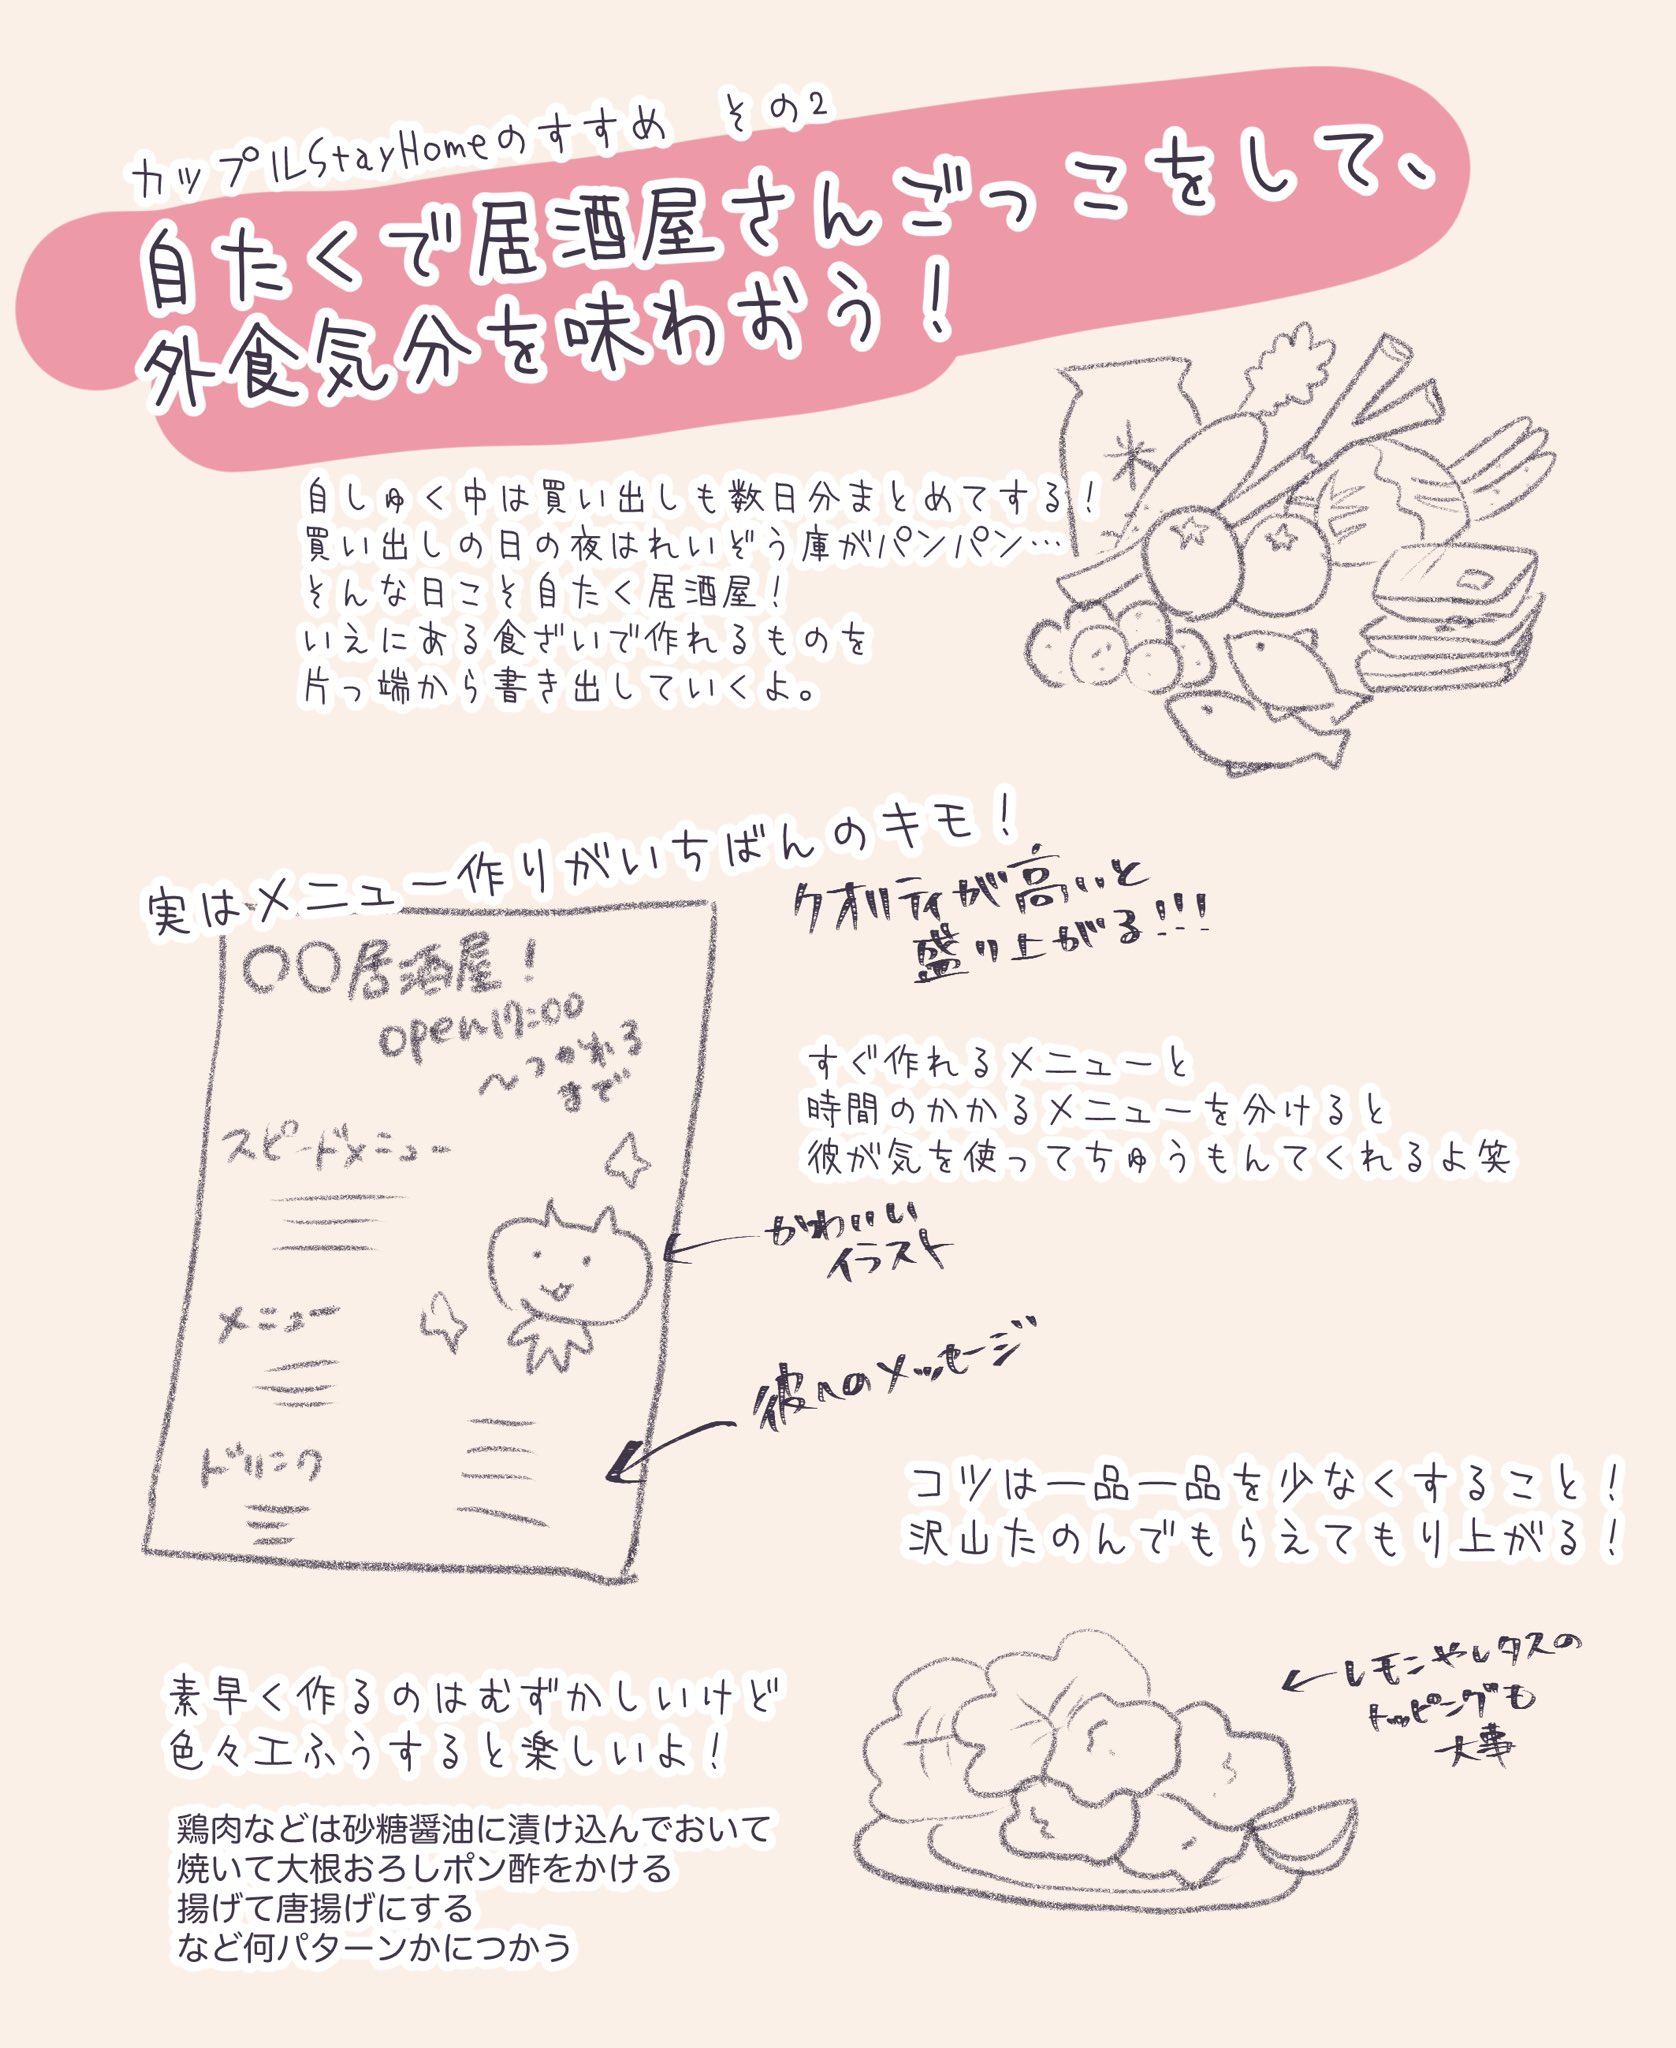 カップルStayHomeのすすめ その2
自たくで居酒屋さんごっこをして、
外食気分を味わおう！
自しゅく中は買い出しも数日分まとめてする！
買い出しの日の夜はれいぞう庫がパンパン…
そんな日こそ自たく居酒屋！
いえにある食ざいで作れるものを
片っ端から書き出していくよ。
米
実はメニュー作りがいちばんのキモ！
クオリティが高いと
盛り上がる!!!
〇〇居酒屋！
open17:00
〜つかれる
まで
スピードメニュー
メニュー
ドリンク
すぐ作れるメニューと
時間のかかるメニューを分けると
彼が気を使ってちゅうもんてくれるよ笑
かわいい
イラスト
彼へのメッセージ
コツは一品一品を少なくすること！
沢山たのんでもらえてもり上がる！
レモンやレタスの
トッピングも
大事
素早く作るのはむずかしいけど
色々工ふうすると楽しいよ！
鶏肉などは砂糖醤油に漬け込んでおいて
焼いて大根おろしポン酢をかける
揚げて唐揚げにする
など何パターンかにつかう